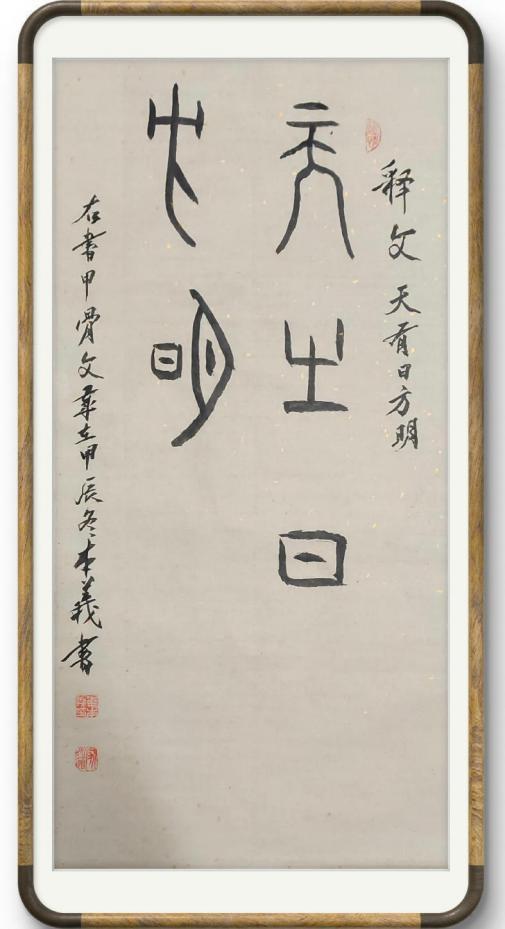 释文 天有日方明
天有日
方明
右書甲骨文歲在甲辰冬本義書